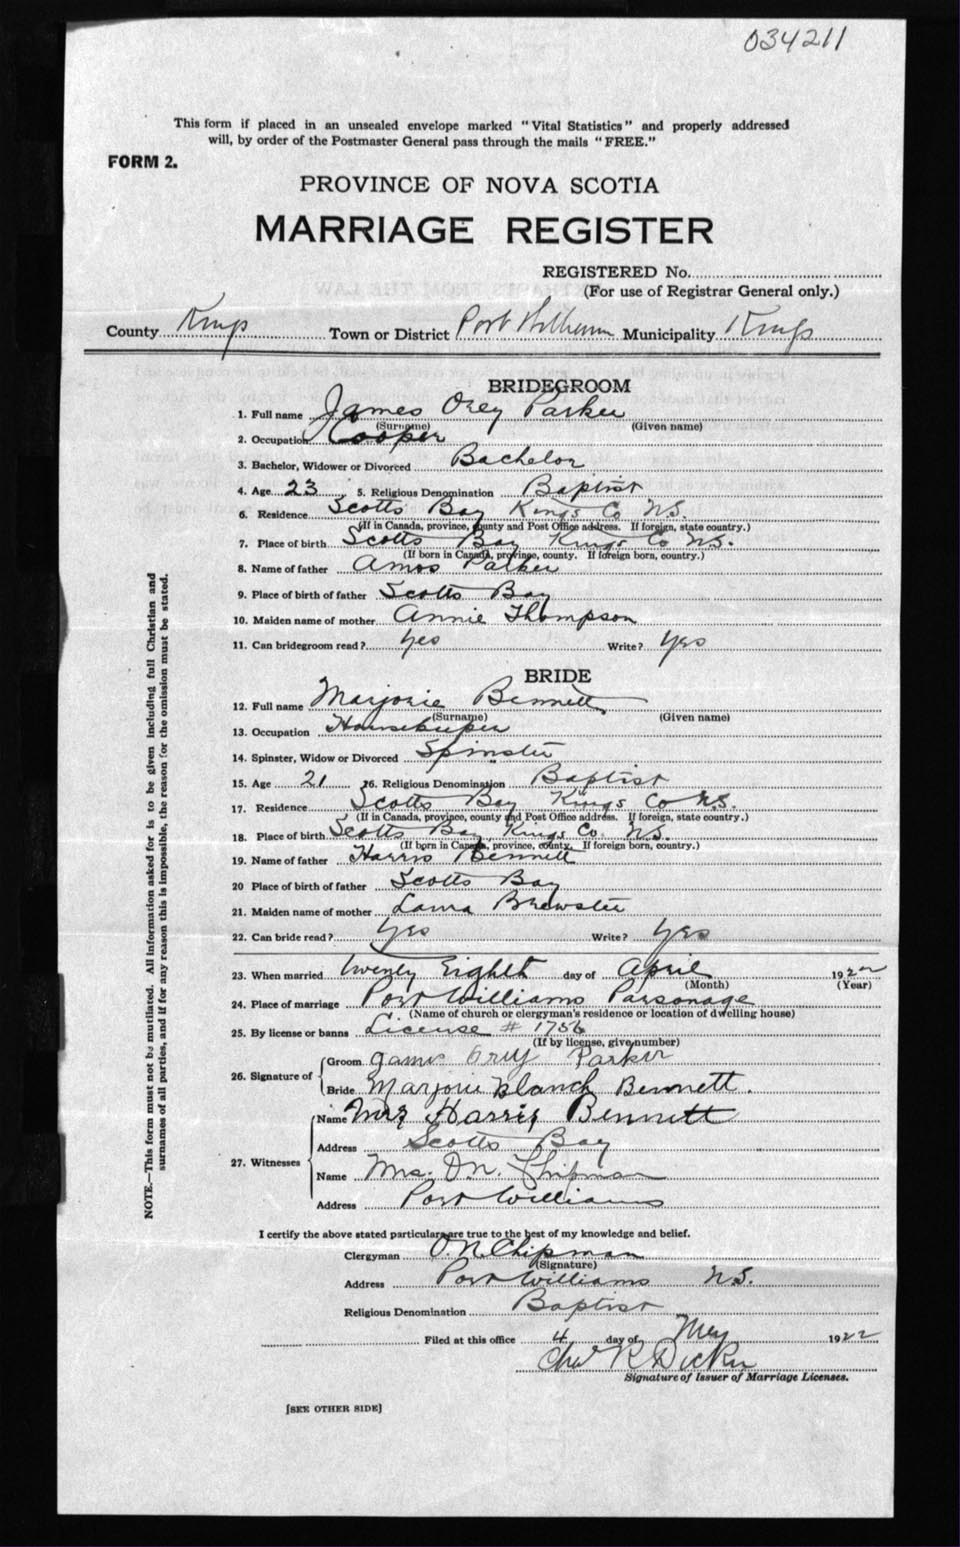 034211
This form if placed in an unsealed envelope marked "Vital Statistics" and properly addressed
will, by order of the Postmaster General pass through the mails "FREE."
FORM 2.
PROVINCE OF NOVA SCOTIA
MARRIAGE REGISTER
REGISTERED No.
(For use of Registrar General only.)
County Kings Town or District Port Williams Municipality Kings
BRIDEGROOM
1. Full name James Orey Parker
(Surname) (Given name)
2. Occupation Cooper
3. Bachelor, Widower or Divorced Bachelor
4. Age 23 5. Religious Denomination Baptist
6. Residence Scotts Bay Kings Co N.S.
(If in Canada, province, county and Post Office address. If foreign, state country.)
7. Place of birth Scotts Bay Kings Co N.S.
(If born in Canada, province, county. If foreign born, country.)
8. Name of father Amos Parker
9. Place of birth of father Scotts Bay
10. Maiden name of mother Annie Thompson
11. Can bridegroom read? Yes Write? Yes
BRIDE
12. Full name Marjorie Bennett
(Surname) (Given name)
13. Occupation Housekeeper
14. Spinster, Widow or Divorced Spinster
15. Age 21 16. Religious Denomination Baptist
17. Residence Scotts Bay Kings Co N.S.
(If in Canada, province, county and Post Office address. If foreign, state country.)
18. Place of birth Scotts Bay Kings Co. N.S.
(If born in Canada, province, county. If foreign born, country.)
19. Name of father Harris Bennett
20 Place of birth of father Scotts Bay
21. Maiden name of mother Laura Brewster
22. Can bride read? Yes Write? Yes
23. When married twenty Eighth day of April 1922
(Month) (Year)
24. Place of marriage Port Williams Parsonage
(Name of church or clergyman's residence or location of dwelling house)
25. By license or banns License # 1756
(If by license, give number)
26. Signature of Groom James Orey Parker
Bride Marjorie Blanch Bennett.
27. Witnesses Name Mrs Harris Bennett
Address Scotts Bay
Name Mrs. O.N. Chipman
Address Port Williams
I certify the above stated particulars are true to the best of my knowledge and belief.
Clergyman O.N. Chipman
(Signature)
Address Port Williams N.S.
Religious Denomination Baptist
Filed at this office 4 day of May 1922
Chas R Dicker
Signature of Issuer of Marriage Licenses.
[SEE OTHER SIDE]
NOTE.—This form must not be mutilated. All information asked for is to be given including full Christian and
surnames of all parties, and if for any reason this is impossible, the reason for the omission must be stated.